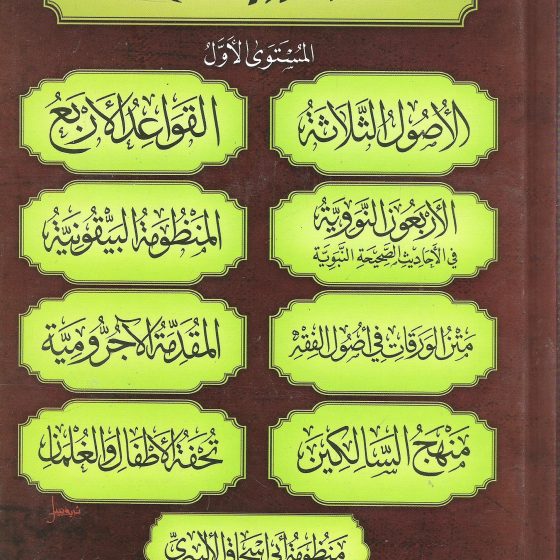 المُسْتَوَى الأَوَّلُ
الأُصُولُ الثَّلَاثَةُ
القَوَاعِدُ الأَرْبَعُ
الأَرْبَعُونَ النَّوَوِيَّةُ
فِي الأَحَادِيثِ الصَّحِيحَةِ النَّبَوِيَّةِ
المَنْظُومَةُ البَيْقُونِيَّةُ
مَتْنُ الوَرَقَاتِ فِي أُصُولِ الفِقْهِ
المُقَدِّمَةُ الآجُرُّومِيَّةُ
مَنْهَجُ السَّالِكِينَ
تُحْفَةُ الأَطْفَالِ وَالغُلْمَانِ
مَنْظُومَةُ أَبِي إِسْحَاقَ الأَلْبِيرِيِّ